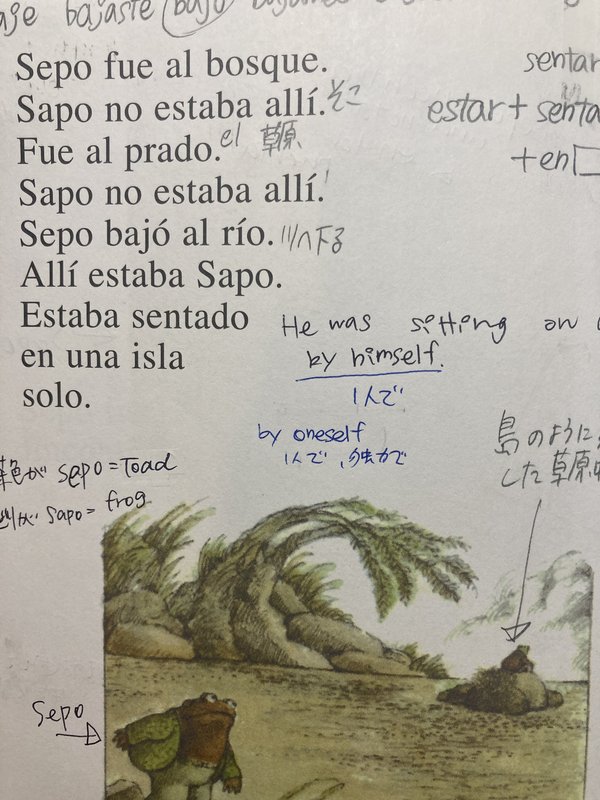 bajaste bajó
Sepo fue al bosque.
Sapo no estaba allí. そこ
Fue al prado. el 草原
Sapo no estaba allí.
Sepo bajó al río. 川へ下る
Allí estaba Sapo.
Estaba sentado
en una isla
solo.
sentar
estar +
+en
He was sitting on
by himself.
1人で
by oneself
1人で、独力で
島のように
した草原
sepo = Toad
sapo = frog
Sepo